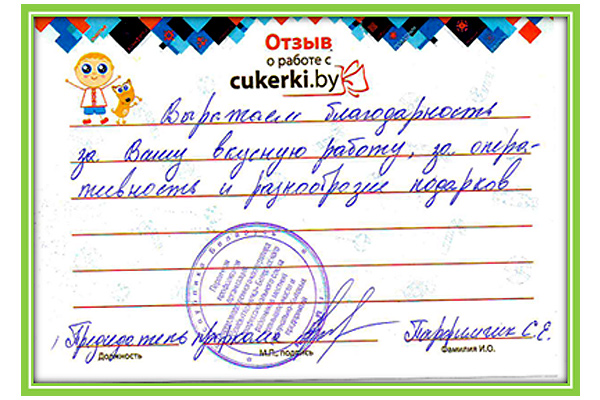 Отзыв
о работе с
cukerki.by
Выражаем благодарность
за Вашу вкусную работу, за опера-
тивность и разнообразие подарков
Председатель профкома
Парфимчик С.Е.
Должность
М.П., подпись
Фамилия И.О.